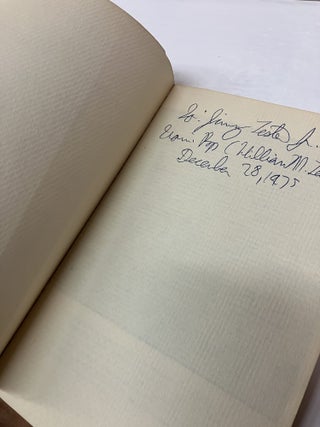 To: Jimmy Teste Jr.
From: Pop (William M. Te
December 28, 1975